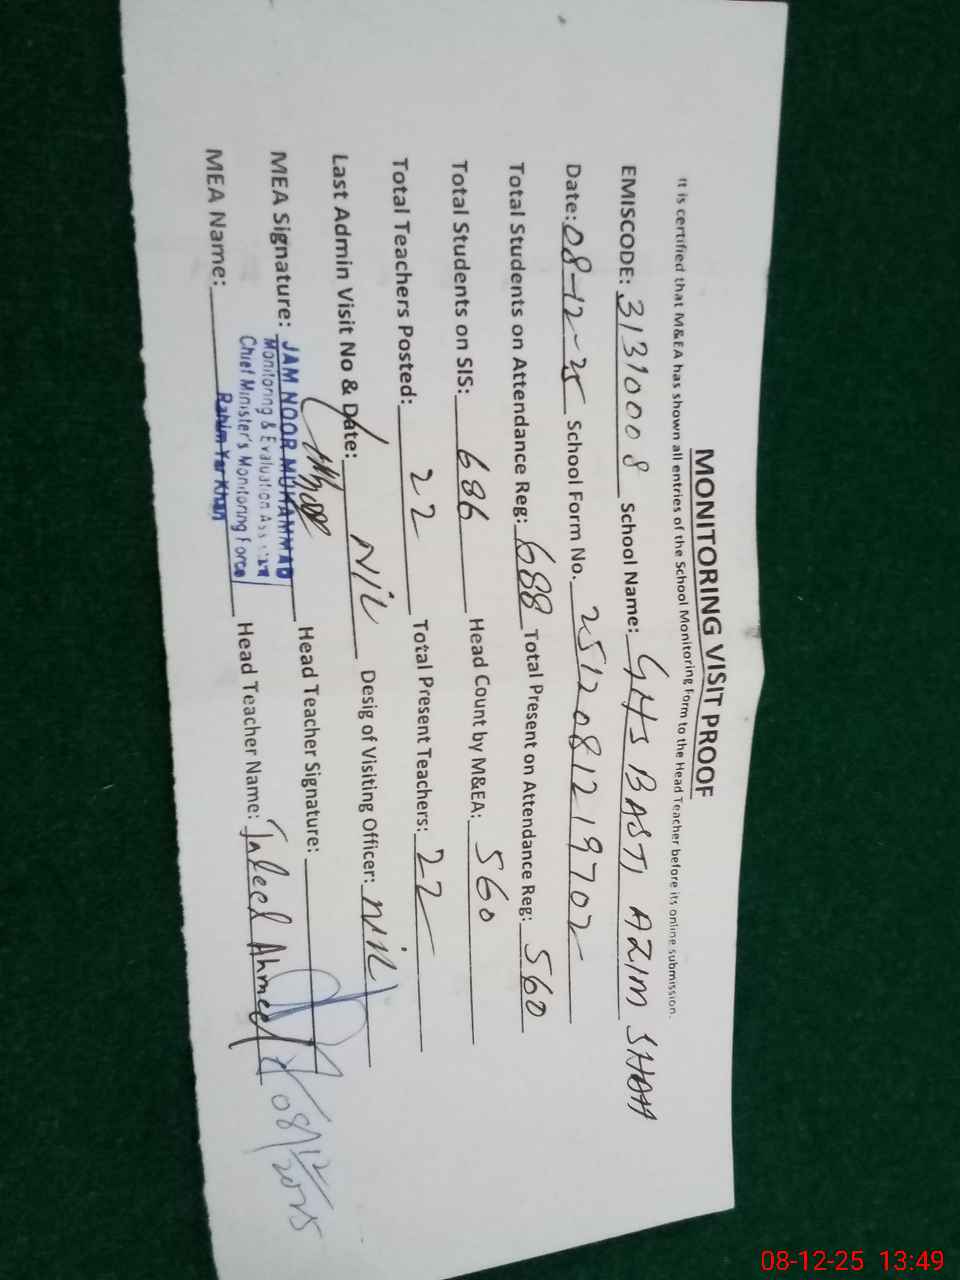 MONITORING VISIT PROOF
It is certified that M&EA has shown all entries of the School Monitoring Form to the Head Teacher before its online submission.
EMISCODE: 31310008 School Name: GHS BASTI AZIM SHAH
Date: 08-12-25 School Form No. 2512081219702
Total Students on Attendance Reg: 688 Total Present on Attendance Reg: 560
Total Students on SIS: 686 Head Count by M&EA: 560
Total Teachers Posted: 22 Total Present Teachers: 22
Last Admin Visit No & Date: NIL Desig of Visiting Officer: NIL
MEA Signature: Head Teacher Signature:
JAM NOOR MUHAMMAD
Monitoring & Evaluation Assistant
Chief Minister's Monitoring Force
Rahim Yar Khan
MEA Name: Head Teacher Name: Jaleel Ahmed
08/12/2025
08-12-25 13:49